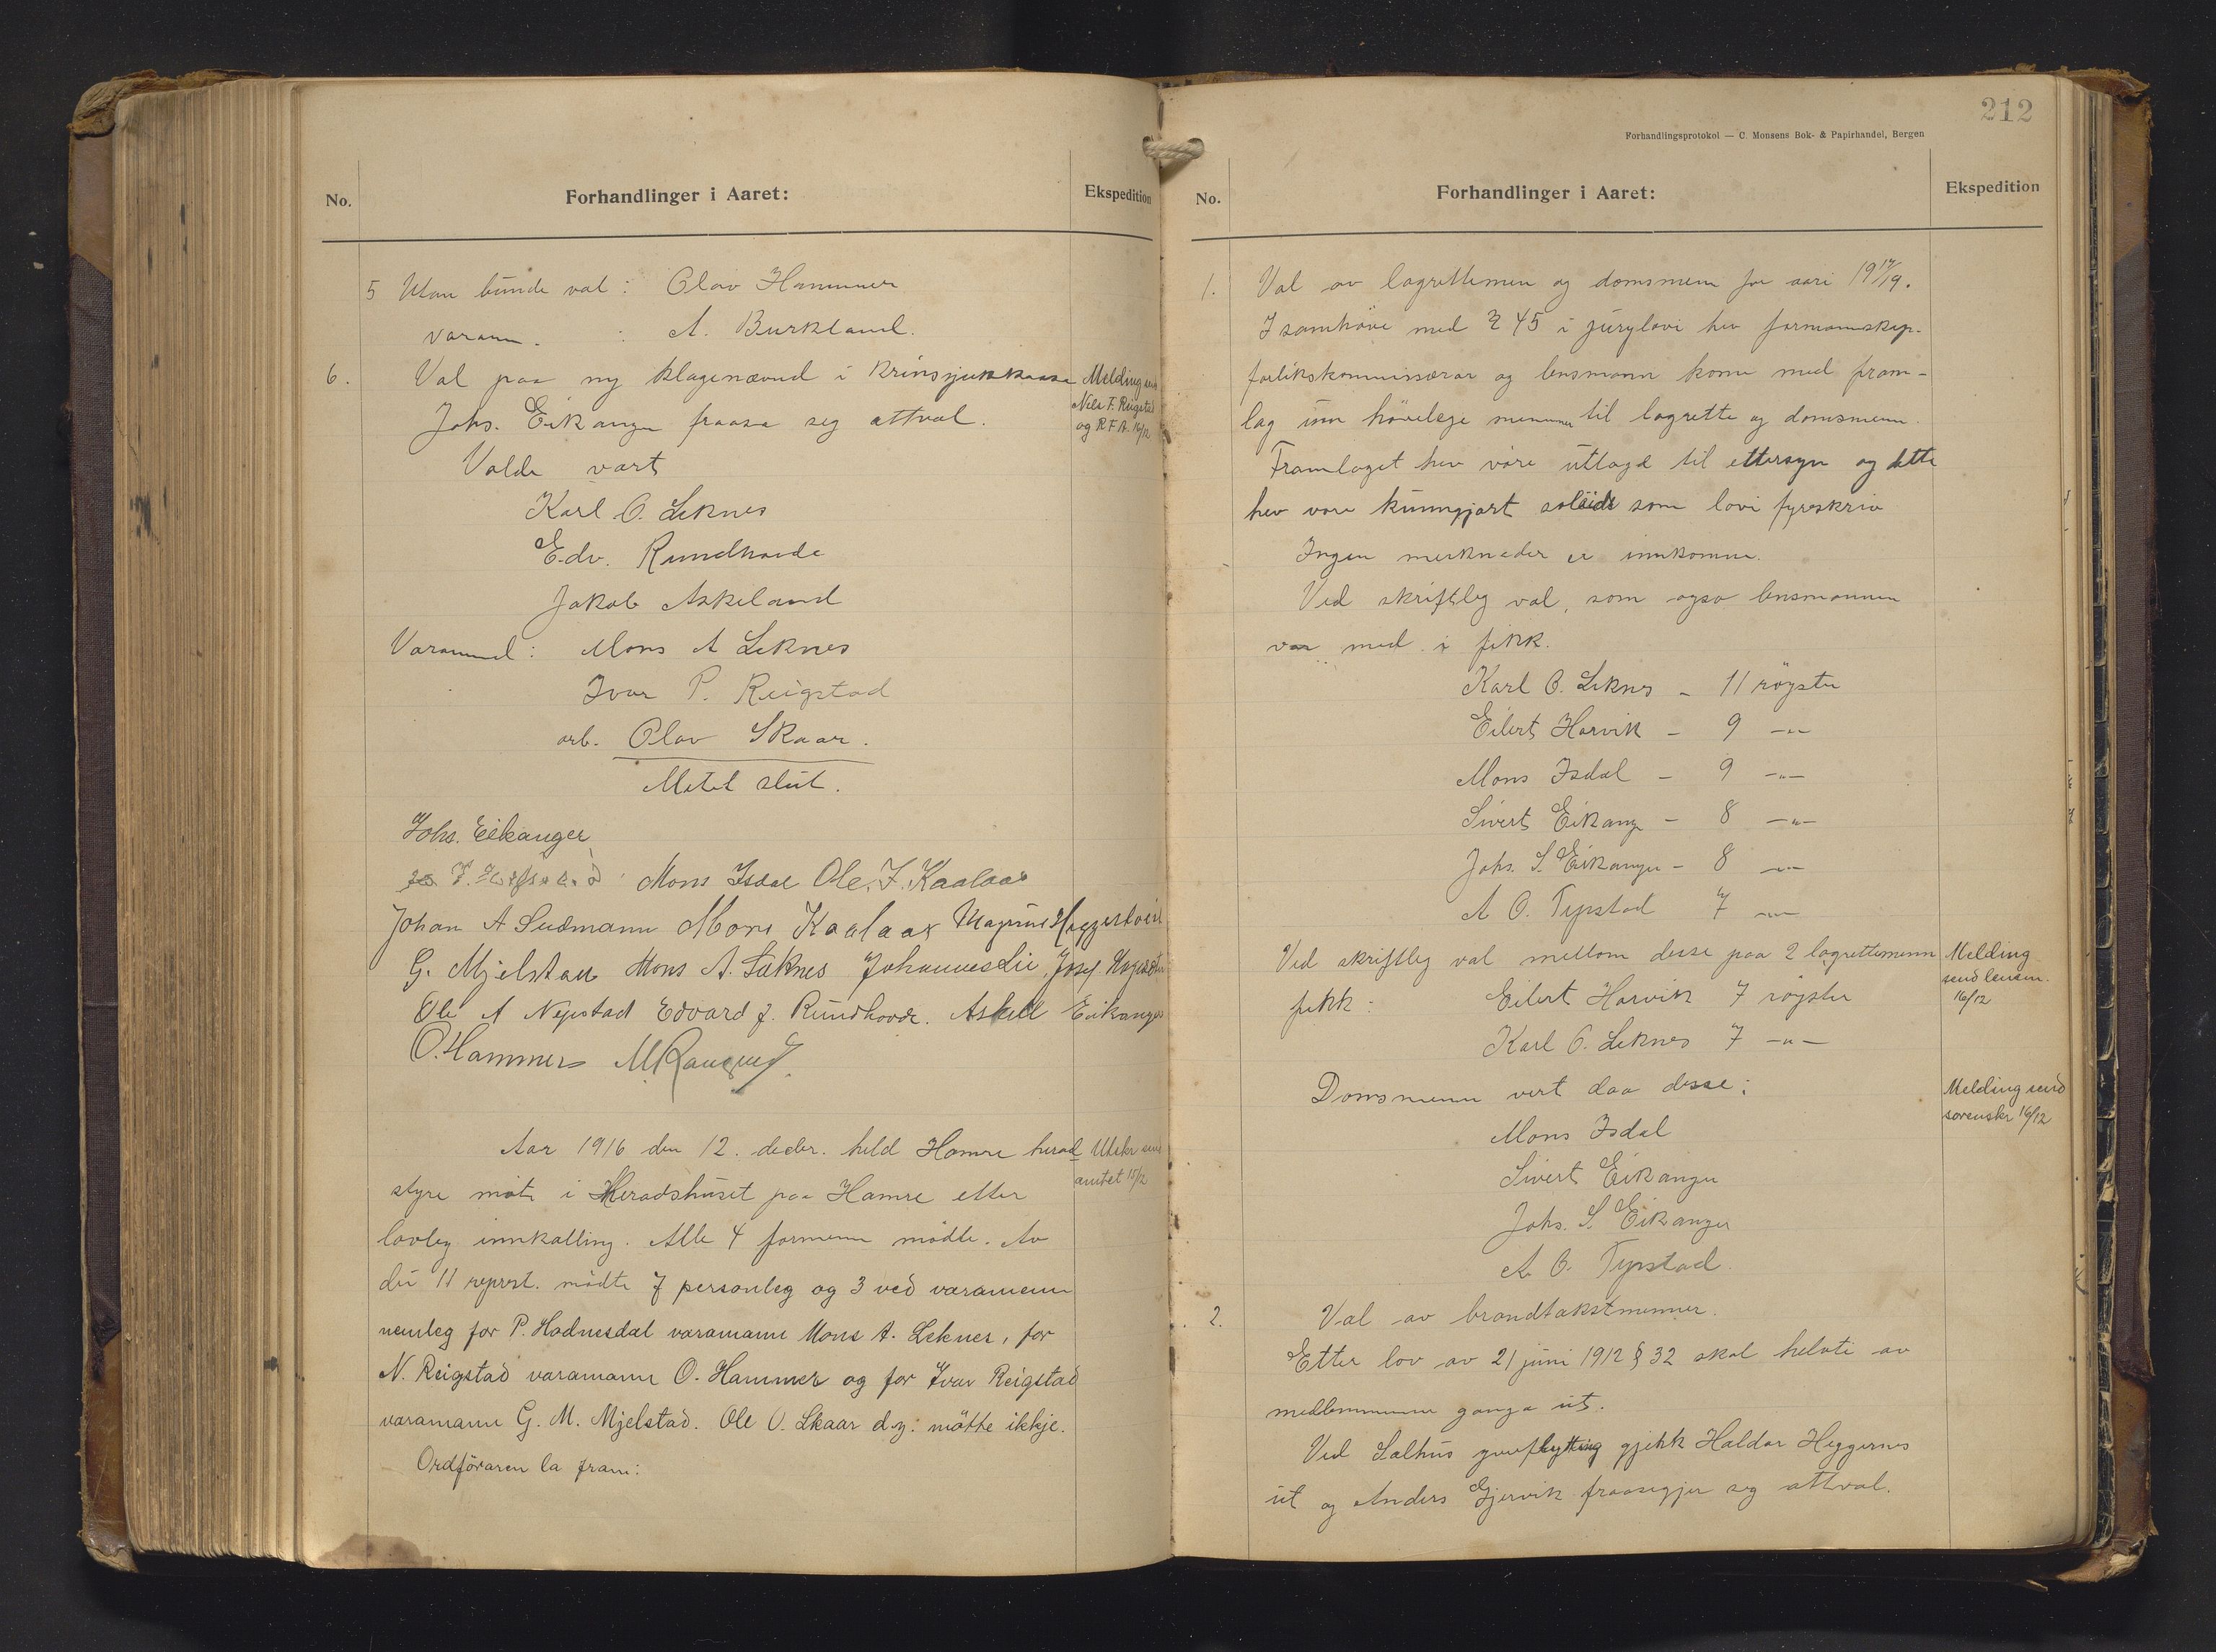 No. Forhandlinger i Aaret: Ekspedition
5 Utan bunde val: Olav Hammer
varam. : A. Burkland.
6. Val paa ny klagenævnd i Krinssjukkassa
Melding send
Nils F. Reigstad
og R F A. 16/12
Johs. Eikanger fraasa seg attval.
Valde vart
Karl O. Leknes
Edv. Rundhovde
Jakob Askeland
Varamend: Mons A Leknes
Ivar P. Reigstad
arb. Olav Skaar.
Møtet slut.
Johs. Eikanger
Mons Isdal Ole. J. Kaalaas
Johan A Sudmann Mons Kaalaas Magnus
G. Mjelstau Mons A. Læknes Johannes Lie, Josef
Ole A Nepstad Edvard J. Rundhovde. Askell Eikanger
O. Hammer
Aar 1916 den 12. decbr. held Hamre herad
Utskr send
amtet 15/12
styre møte i Heradshuset paa Hamre etter
lovleg innkalling. Alle 4 formenn mødte. Av
dei 11 reprst. mødte 7 personleg og 3 ved varamenn
nemleg for P. Hadnesdal varamann Mons A. Leknes, for
N. Reigstad varamann O. Hammer og for Ivar Reigstad
varamann G. M. Mjelstad. Ole O. Skaar d.y. møtte ikkje.
Ordføraren la fram:
212
Forhandlingsprotokol — C. Monsens Bok- & Papirhandel, Bergen
No. Forhandlinger i Aaret: Ekspedition
1. Val av lagrettemen og domsmenn for aari 1917/19.
I samhøve med § 45 i jurylovi hev formannskap.
forlikskommissærar og lensmann kome med fram-
lag um høvelege mennar til lagrette og domsmenn.
Framlaget hev vore utlagd til ettersyn og dette
hev vore kunngjort soleids som lovi fyreskriv
Ingen merknader er innkomne.
Ved skriftleg val, som ogso lensmannen
var med i fikk.
Karl O. Leknes - 11 røyster
Eilert Horvik - 9 -"-
Mons Isdal - 9 -"-
Sivert Eikanger - 8 -"-
Johs. S. Eikanger - 8 -"-
A O. Typstad 7 -"-
Ved skriftleg val mellom desse paa 2 lagrettemenn
Melding
send lensm.
16/12
fikk: Eilert Horvik 7 røyster
Karl O. Leknes 7 -"-
Domsmenn vert daa desse:
Melding send
sorenskr 16/12
Mons Isdal
Sivert Eikanger
Johs. S. Eikanger
A. O. Typstad.
2. Val av brandtakstmenner.
Etter lov av 21 juni 1912 § 32 skal helvti av
medlemmene ganga ut.
Ved Salhus gjekk Haldor Heggernes
ut og Anders Gjervik fraasegjer seg attval.